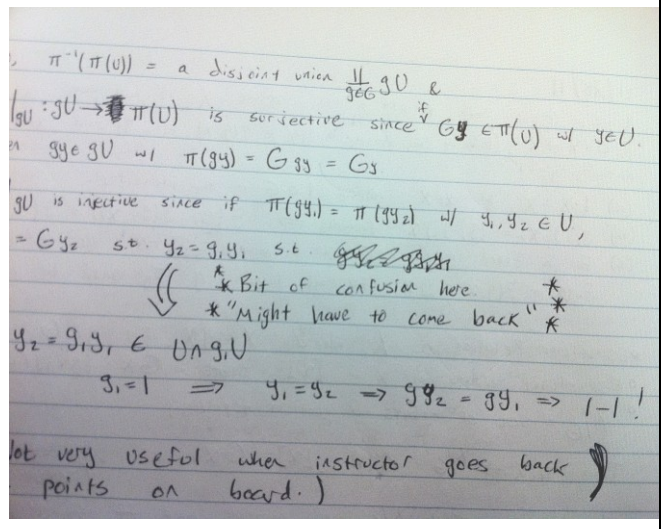 π⁻¹(π(U)) = a disjoint union ∐ g∈G gU &
|gU : gU → π(U) is surjective since if Gy ∈ π(U) w/ y∈U.
gy ∈ gU w/ π(gy) = Ggy = Gy
gU is injective since if π(gy₁) = π(gy₂) w/ y₁, y₂ ∈ U,
= Gy₂ s.t. y₂ = g₁y₁ s.t.
* * Bit of confusion here *
* "Might have to come back" * *
y₂ = g₁y₁ ∈ U∩g₁U
g₁=1 ⟹ y₁=y₂ ⟹ gy₂ = gy₁ ⟹ 1–1!
very useful when instructor goes back
points on board.)